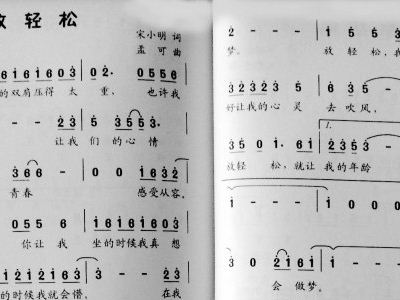 放轻松
宋小明 词
孟 可 曲
6i6i6i603 | 02· 0556
的双肩压得 太 重， 也许我
- - 23 | 5 3553·
让我 们 的心 情
366 - | 00 632
青春 感受从容。
055 6 | i6i6i603
你 让 我 坐的时候我真想
i212i263 | 3 - - 23
的时候我就会懵。 在我
2 - - - | i 5 5 3
梦。 放 轻 松，我
323235 3
好让我的心 灵 去 吹 风，
1.
6i216i | 2353 3
放轻 松，就让 我的年龄
i - - - | i 0 0 0
3 0 2i61 | i - -
会 做梦。